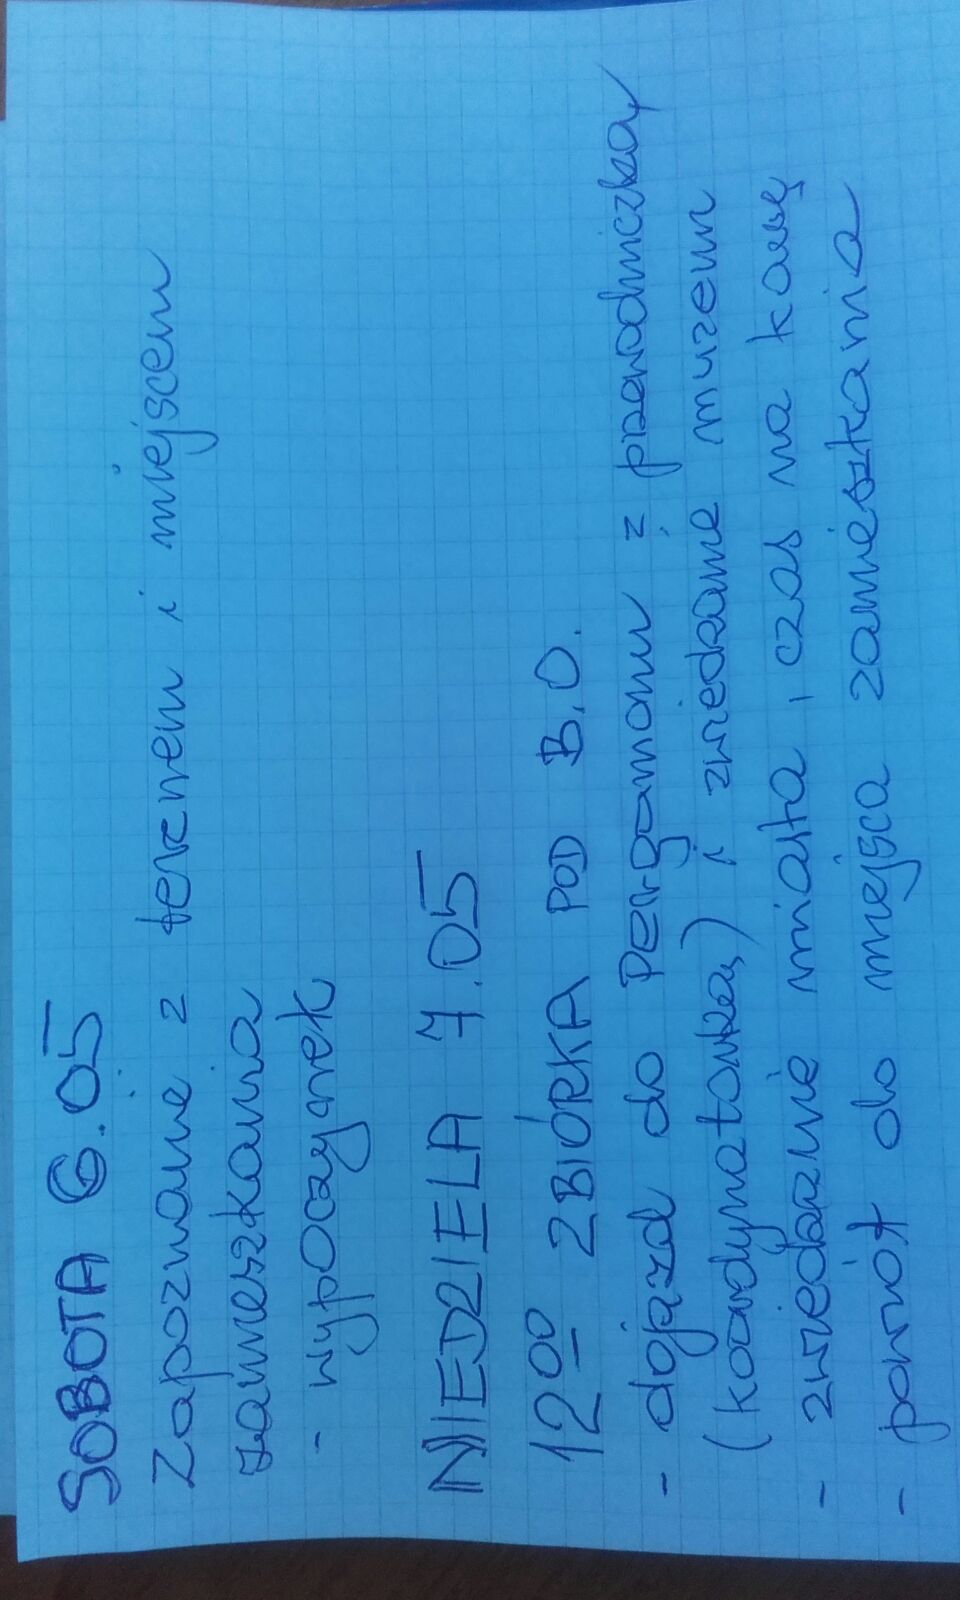 SOBOTA 6.05
Zapoznanie z terenem i miejscem
zamieszkania
- wypoczynek
NIEDZIELA 7.05
12⁰⁰ ZBIÓRKA POD B.O.
- dojazd do Pergamonu z przewodniczką
(koordynatorką) i zwiedzanie muzeum
- zwiedzanie miasta, czas na kawę
- powrót do miejsca zamieszkania